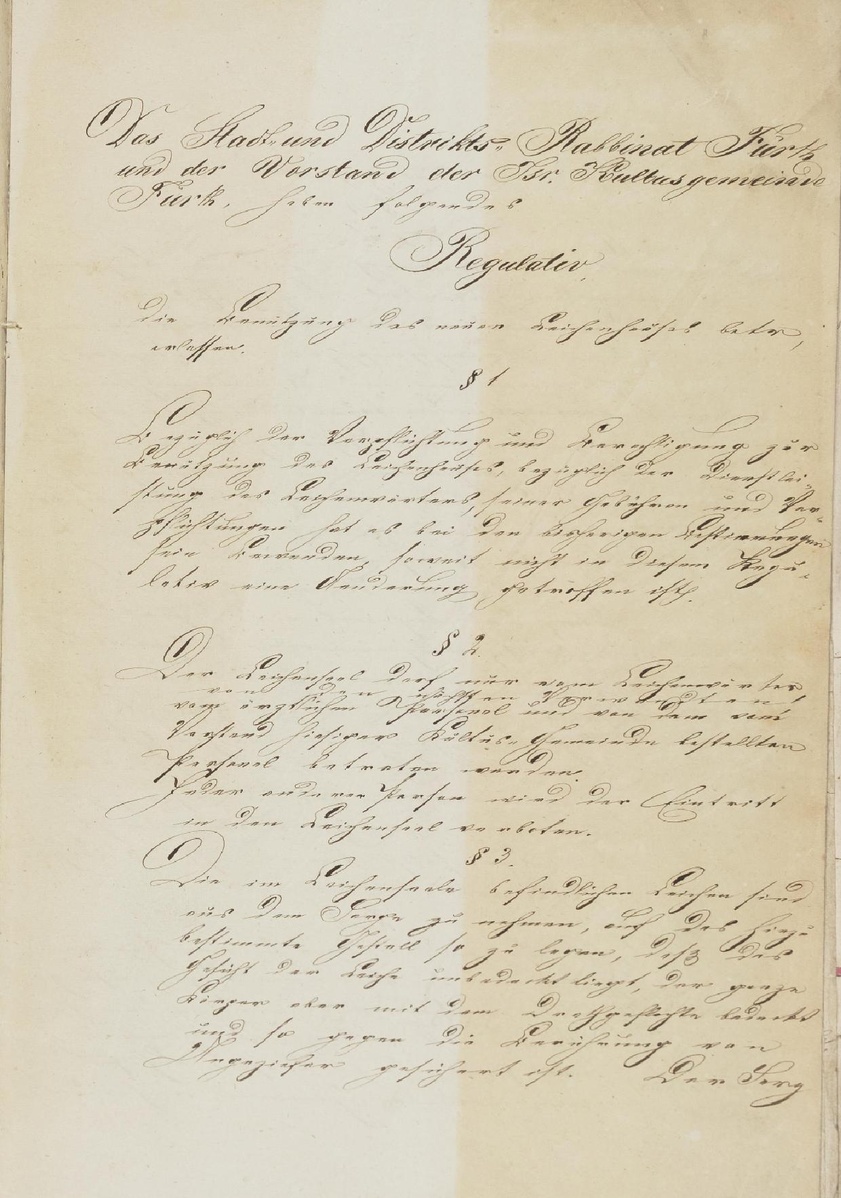 Das Stadt- und Distrikts-Rabbinat Fürth
und der Vorstand der Isr. Kultusgemeinde
Fürth, haben folgendes
Regulativ,
die Benützung des neuen Leichenhauses betr,
erlassen.
§ 1
Bezüglich der Verpflichtung und Berechtigung zur
Benützung des Leichenhauses, bezüglich der Dienstlei-
stung des Leichenwärters, seiner Gebühren und Ver-
pflichtungen hat es bei den bisherigen Bestimmungen
sein Bewenden, soweit nicht in diesem Regu-
lativ eine Aenderung getroffen ist.
§ 2.
Der Leichensaal darf nur vom Leichenwärter
von den nächsten Verwandten,
vom ärztlichen Personal und von dem vom
Vorstand hiesiger Kultus-Gemeinde bestellten
Personal betreten werden.
Jeder anderen Person wird der Eintritt
in den Leichensaal verboten.
§ 3.
Die im Leichensaale befindlichen Leichen sind
aus dem Sarge zu nehmen, auf das hiezu
bestimmte Gestell so zu legen, daß das
Gesicht der Leiche unbedeckt liegt, der ganze
Körper aber mit dem Drahtgeflechte bedeckt
und so gegen die Berührung von
Ungeziefer gesichert ist. Der Sarg